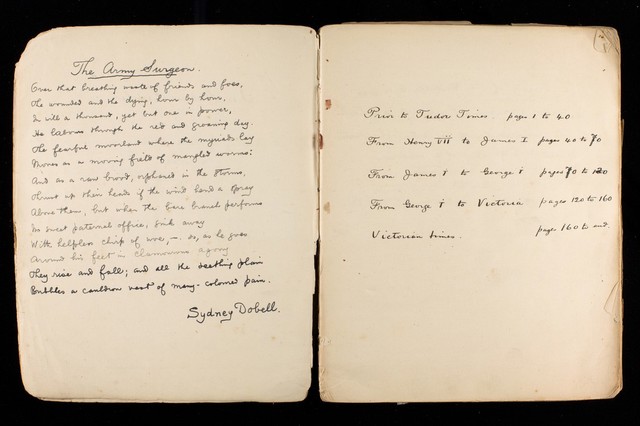 The Army Surgeon.
Over that breathing waste of friends and foes,
The wounded and the dying, hour by hour,
In will a thousand, yet but one in power,
He labours through the red and groaning day.
The fearful moorland where the myriads lay
Moves as a moving field of mangled worms:
And as a raw brood, orphaned in the storms,
Thrust up their heads if the wind bend a spray
Above them, but when the bare branch performs
No sweet paternal office, sink away
With helpless chirp of woe, – so, as he goes
Around his feet in clamorous agony
They rise and fall; and all the seething plain
Bubbles a cauldron vast of many-colored pain.
Sydney Dobell.
Prior to Tudor Times, pages 1 to 40
From Henry VII to James I pages 40 to 70
From James I to George I pages 70 to 120
From George I to Victoria pages 120 to 160
Victorian times. pages 160 to end.